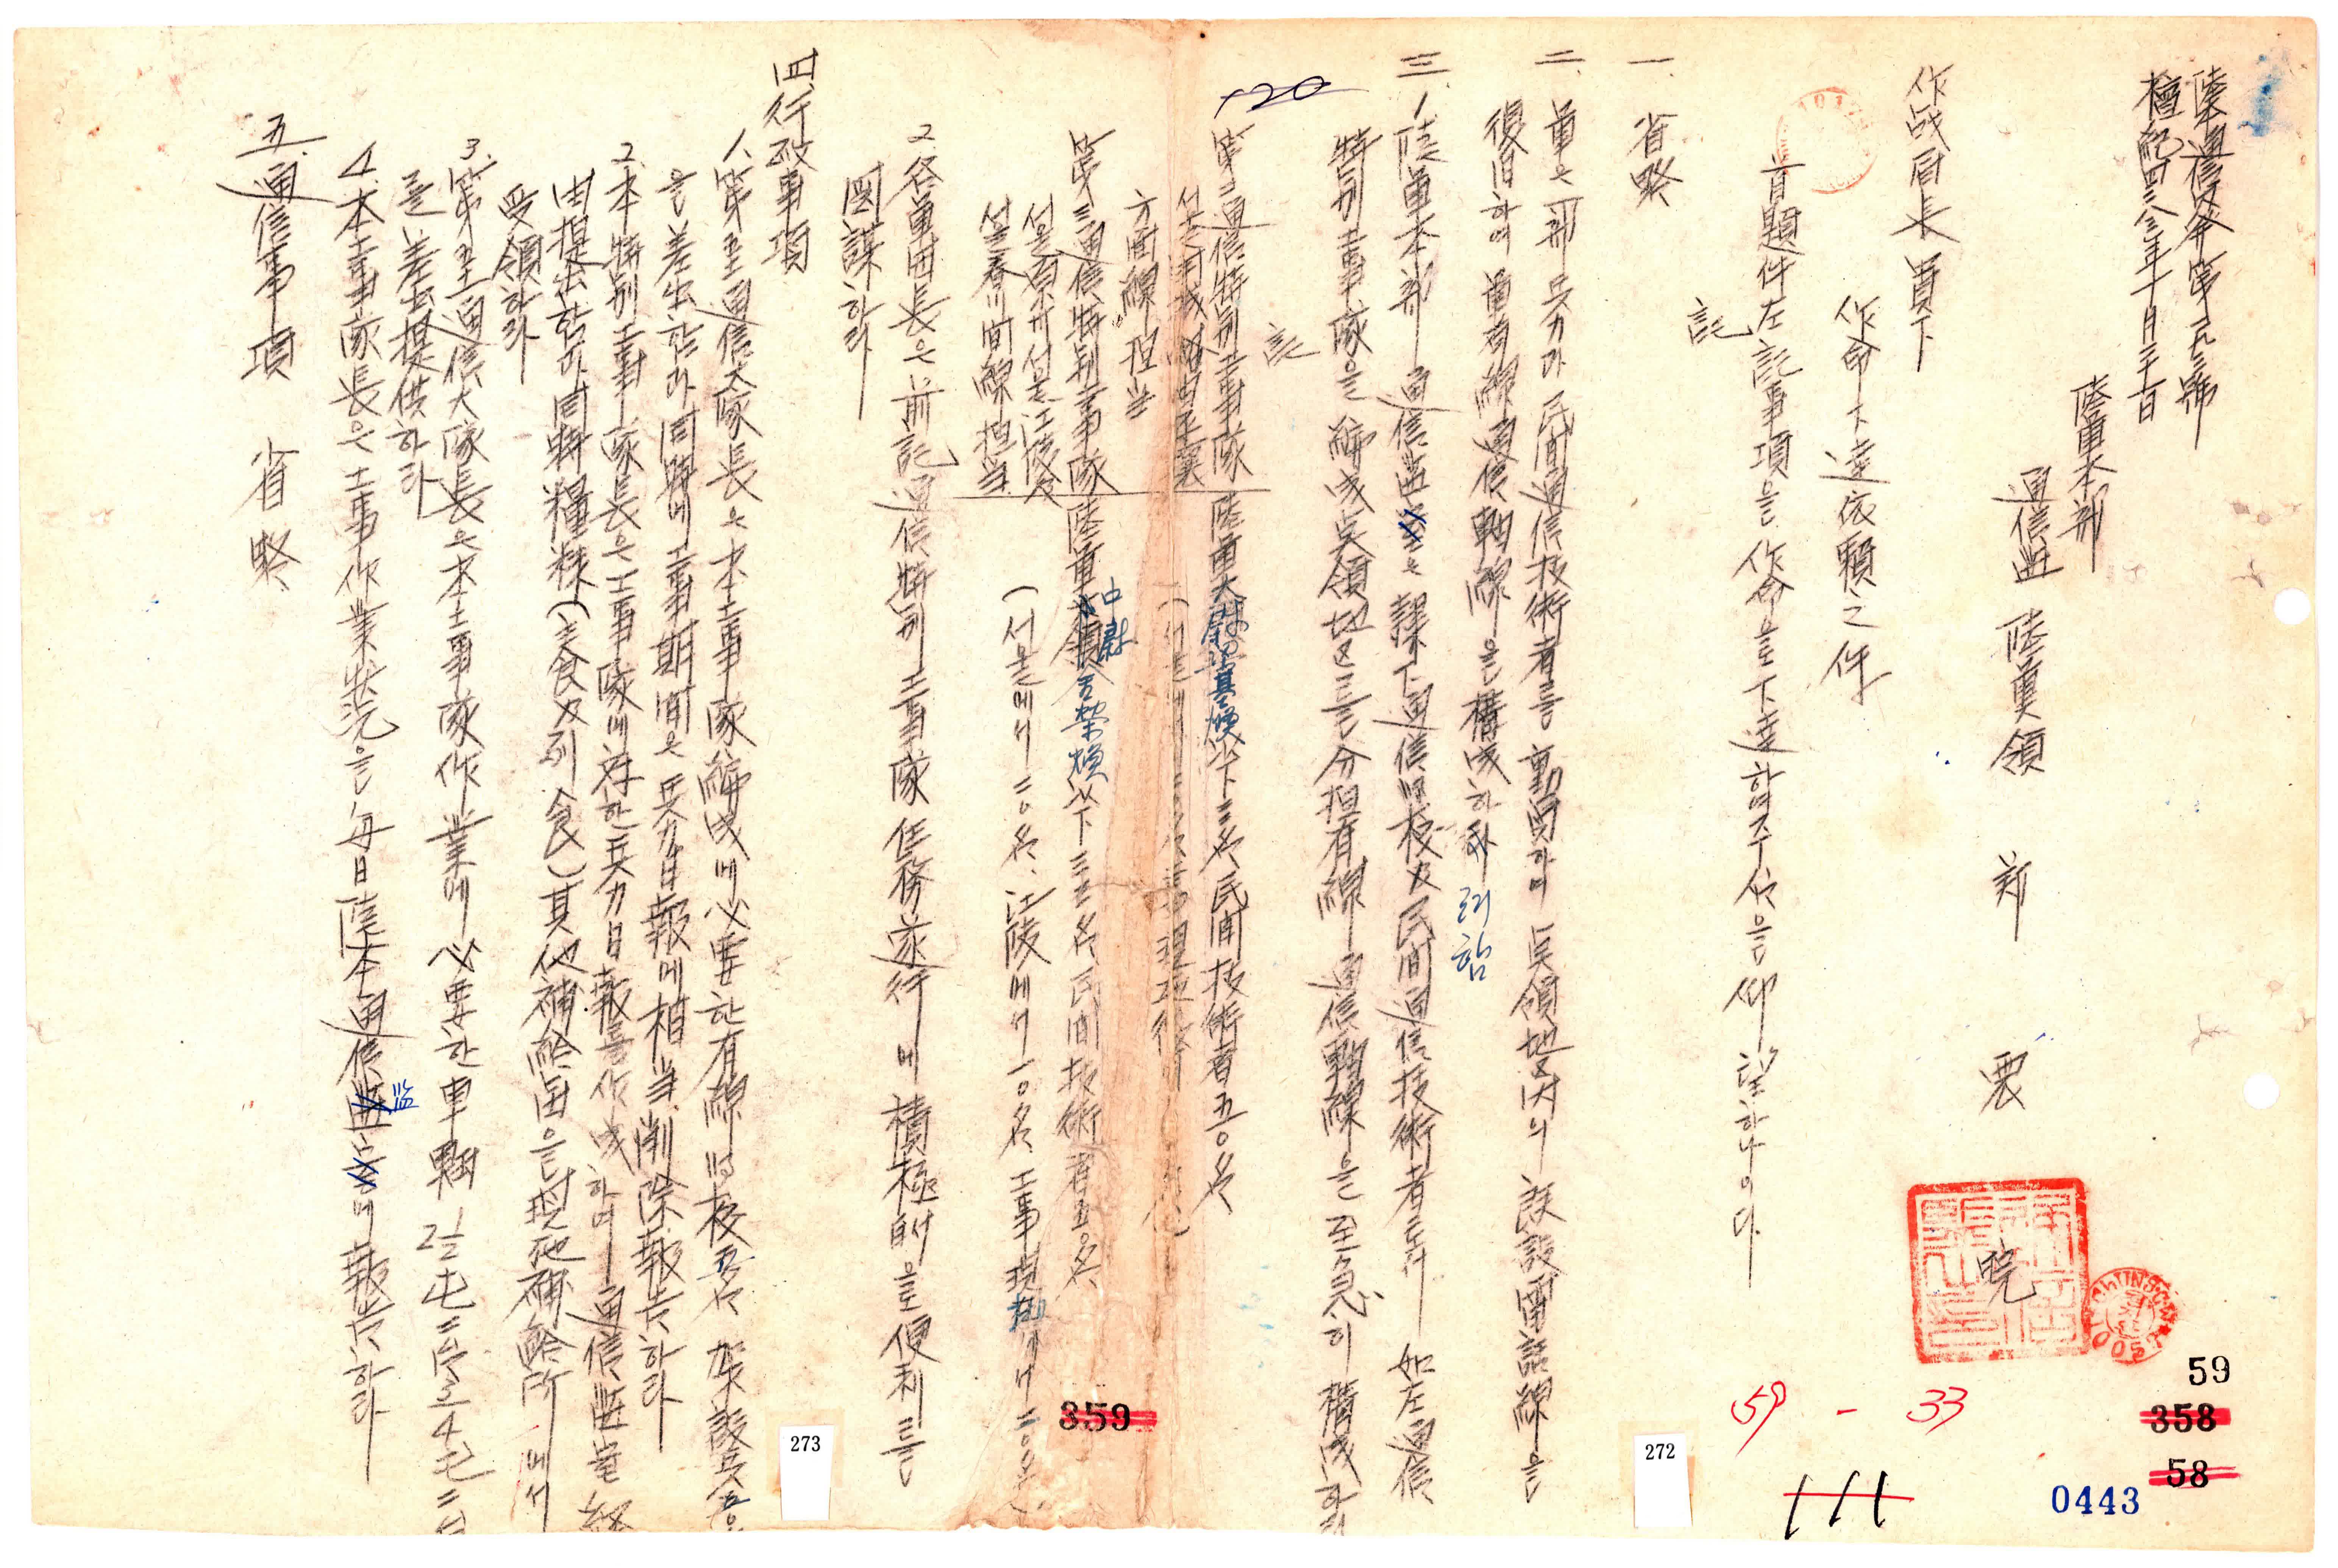 陸軍本部
檀紀四二八三年十月二十日
通信監 陸軍大領 鄭 震 晥
作战局長 貴下
作命下達依賴之件
首題件左記事項을 作命으로 下達하여주심을 仰望하나이다
記
一. 省略
二. 軍은 一部 兵力과 民間通信技術者를 動員하여 吳領地区内의 設設電話線을
復旧하여 軍有線通信軸線을 構成하 려함
三. 1. 陸軍本部 通信監은 課下通信将校及民間通信技術者로서 如左通信
特別工事隊을 編成 吳領地区를 分担有線 通信軸線을 至急히 構成하라
記
第二通信特別工事隊 陸軍大尉 以下 三名 民間技術者五〇名
方面線担当
第三通信特別工事隊 陸軍中尉 以下 三名 民間技術者五〇名
서울原州 서울江陵及 (서울에서 二〇名, 江陵에서 一〇名 工事現地에서 二〇名)
서울春川間線担当
2. 各軍団長은 前記通信特別工事隊 任務遂行에 積極的으로 便利를
図謀하라
四. 行政事項
1. 第五通信大隊長은 本工事隊編成에 必要한有線 将校五名 架設兵 五〇
을 差出함과 同時에 工事期間은 兵力日報에 相当 削除報告하라
2. 本特別工事隊長은 工事隊에 対한 兵力日報를 作成하여 通信監室経
由提出함과 同時 糧秣(主食及副食)其他補給品을 現地補給所에서
受領하라
3. 第五通信大隊長은 本工事隊作業에 必要한 車輛 2½屯二台
를 差出提供하라
4. 本工事隊長은 工事作業狀況을 每日陸本通信監에 報告하라
五. 通信事項 省略
120
359
273
272
59 - 33
111
59
358
58
0443